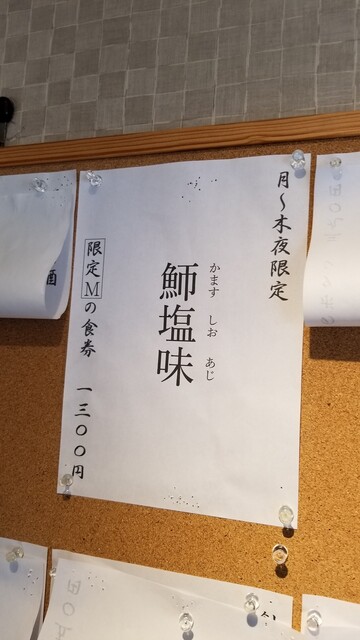 月〜木夜限定
魳塩味
かます しお あじ
限定Mの食券 一三〇〇円
酒